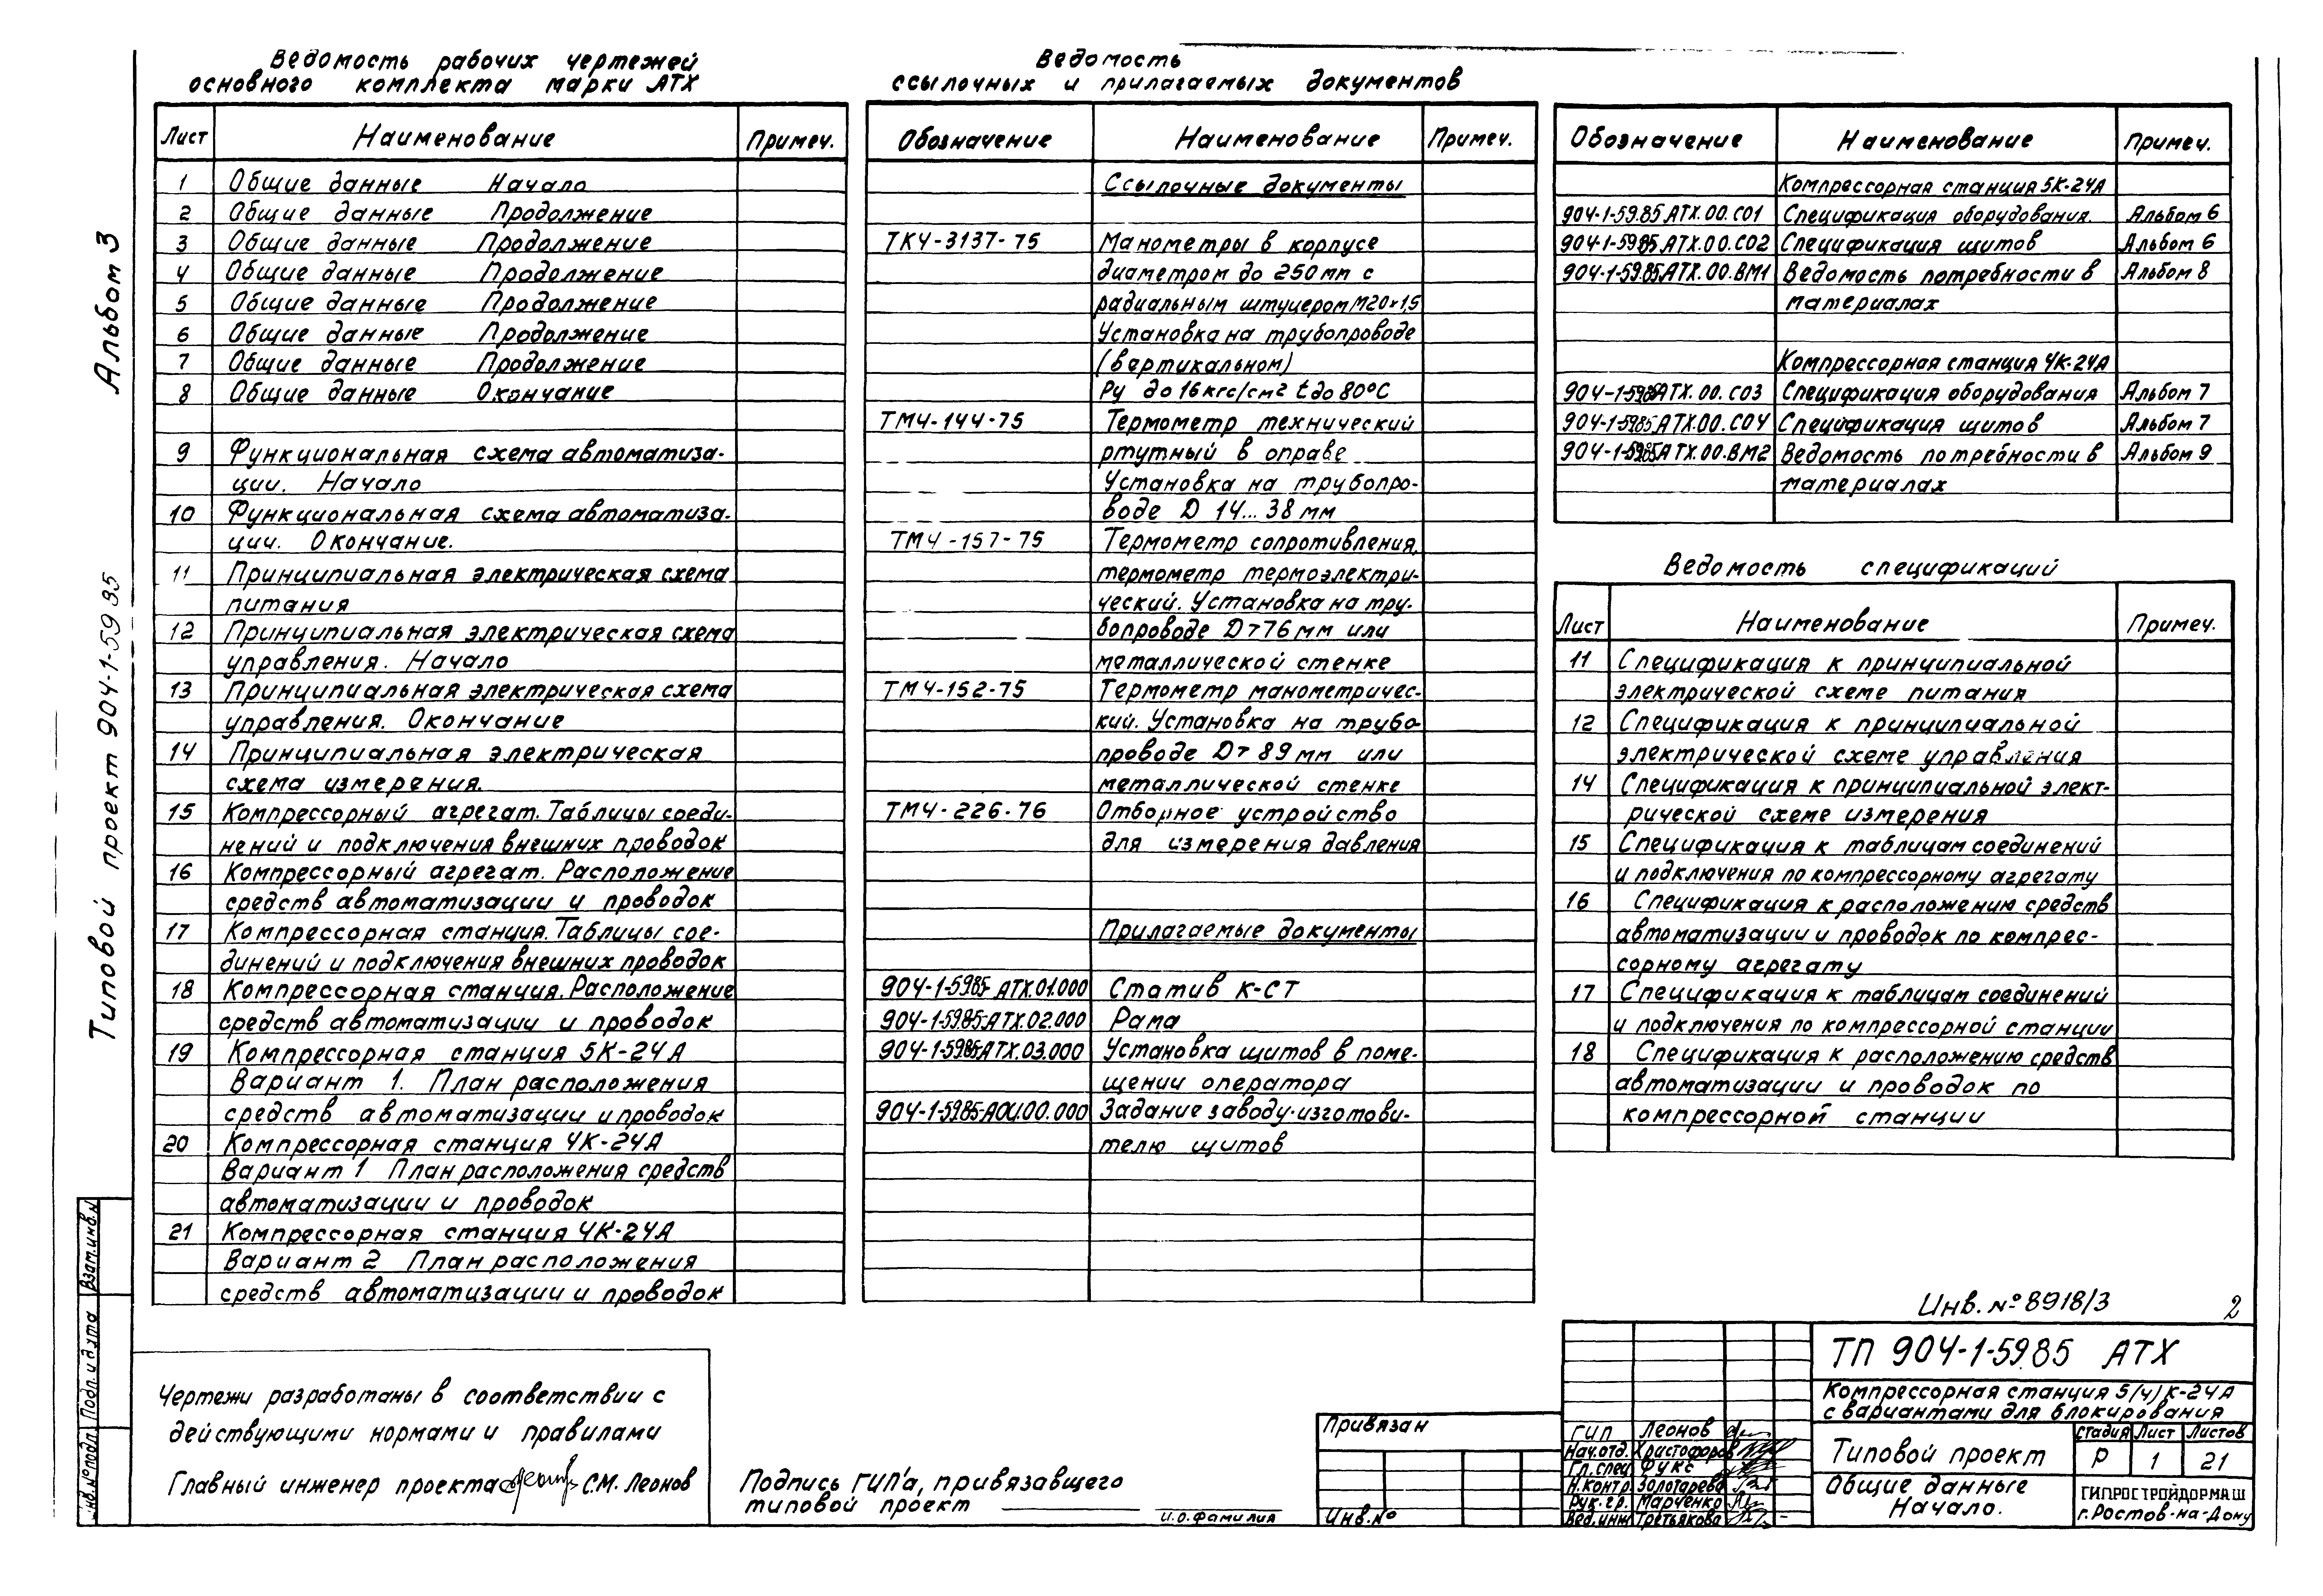 Альбом 3
Типовой проект 904-1-59 85
Взам.инв.№
Подп. и дата
Инв.№ подл.
Ведомость рабочих чертежей
основного комплекта марки АТХ
Лист Наименование Примеч.
1 Общие данные Начало
2 Общие данные Продолжение
3 Общие данные Продолжение
4 Общие данные Продолжение
5 Общие данные Продолжение
6 Общие данные Продолжение
7 Общие данные Продолжение
8 Общие данные Окончание
9 Функциональная схема автоматиза-
ции. Начало
10 Функциональная схема автоматиза-
ции. Окончание.
11 Принципиальная электрическая схема
питания
12 Принципиальная электрическая схема
управления. Начало
13 Принципиальная электрическая схема
управления. Окончание
14 Принципиальная электрическая
схема измерения.
15 Компрессорный агрегат. Таблицы соеди-
нений и подключения внешних проводок
16 Компрессорный агрегат. Расположение
средств автоматизации и проводок
17 Компрессорная станция. Таблицы сое-
динений и подключения внешних проводок
18 Компрессорная станция. Расположение
средств автоматизации и проводок
19 Компрессорная станция 5К-24А
Вариант 1. План расположения
средств автоматизации и проводок
20 Компрессорная станция 4К-24А
Вариант 1 План расположения средств
автоматизации и проводок
21 Компрессорная станция 4К-24А
Вариант 2 План расположения
средств автоматизации и проводок
Ведомость
ссылочных и прилагаемых документов
Обозначение Наименование Примеч.
Ссылочные документы
ТК4-3137-75 Манометры в корпусе
диаметром до 250мм с
радиальным штуцером М20×1,5
Установка на трубопроводе
(вертикальном)
Ру до 16кгс/см² t до 80°С
ТМ4-144-75 Термометр технический
ртутный в оправе
Установка на трубопро-
воде D 14...38 мм
ТМ4-157-75 Термометр сопротивления,
термометр термоэлектри-
ческий. Установка на тру-
бопроводе D>76 мм или
металлической стенке
ТМ4-152-75 Термометр манометричес-
кий. Установка на трубо-
проводе D> 89 мм или
металлической стенке
ТМ4-226-76 Отборное устройство
для измерения давления
Прилагаемые документы
904-1-5985-АТХ.01.000 Статив К-СТ
904-1-5985-АТХ.02.000 Рама
904-1-5985АТХ.03.000 Установка щитов в поме-
щении оператора
904-1-5985-АОИ.00.000 Задание заводу-изготови-
телю щитов
Обозначение Наименование Примеч.
Компрессорная станция 5К-24А
904-1-59.85 АТХ.00.С01 Спецификация оборудования. Альбом 6
904-1-5985 АТХ.00.С02 Спецификация щитов Альбом 6
904-1-59.85 АТХ.00.ВМ1 Ведомость потребности в Альбом 8
материалах
Компрессорная станция 4К-24А
904-1-5985АТХ.00.С03 Спецификация оборудования Альбом 7
904-1-5985 АТХ.00.С04 Спецификация щитов Альбом 7
904-1-5985АТХ.00.ВМ2 Ведомость потребности в Альбом 9
материалах
Ведомость спецификаций
Лист Наименование Примеч.
11 Спецификация к принципиальной
электрической схеме питания
12 Спецификация к принципиальной
электрической схеме управления
14 Спецификация к принципиальной элект-
рической схеме измерения
15 Спецификация к таблицам соединений
и подключения по компрессорному агрегату
16 Спецификация к расположению средств
автоматизации и проводок по компрес-
сорному агрегату
17 Спецификация к таблицам соединений
и подключения по компрессорной станции
18 Спецификация к расположению средств
автоматизации и проводок по
компрессорной станции
Чертежи разработаны в соответствии с
действующими нормами и правилами
Главный инженер проекта С.М. Леонов
Подпись ГИП'а, привязавшего
типовой проект
И.О.Фамилия
Привязан
Инв.№
Инв.№ 8918/3 2
ТП 904-1-59.85 АТХ
Компрессорная станция 5(4)К-24А
с вариантами для блокирования
ГИП Леонов
Нач.отд. Христофоров
Гл.спец. Фукс
Н.контр. Золотарева
Рук.гр. Марченко
Вед.инж Третьякова
Типовой проект
Стадия Лист Листов
Р 1 21
Общие данные
Начало.
ГИПРОСТРОЙДОРМАШ
г.Ростов-на-Дону